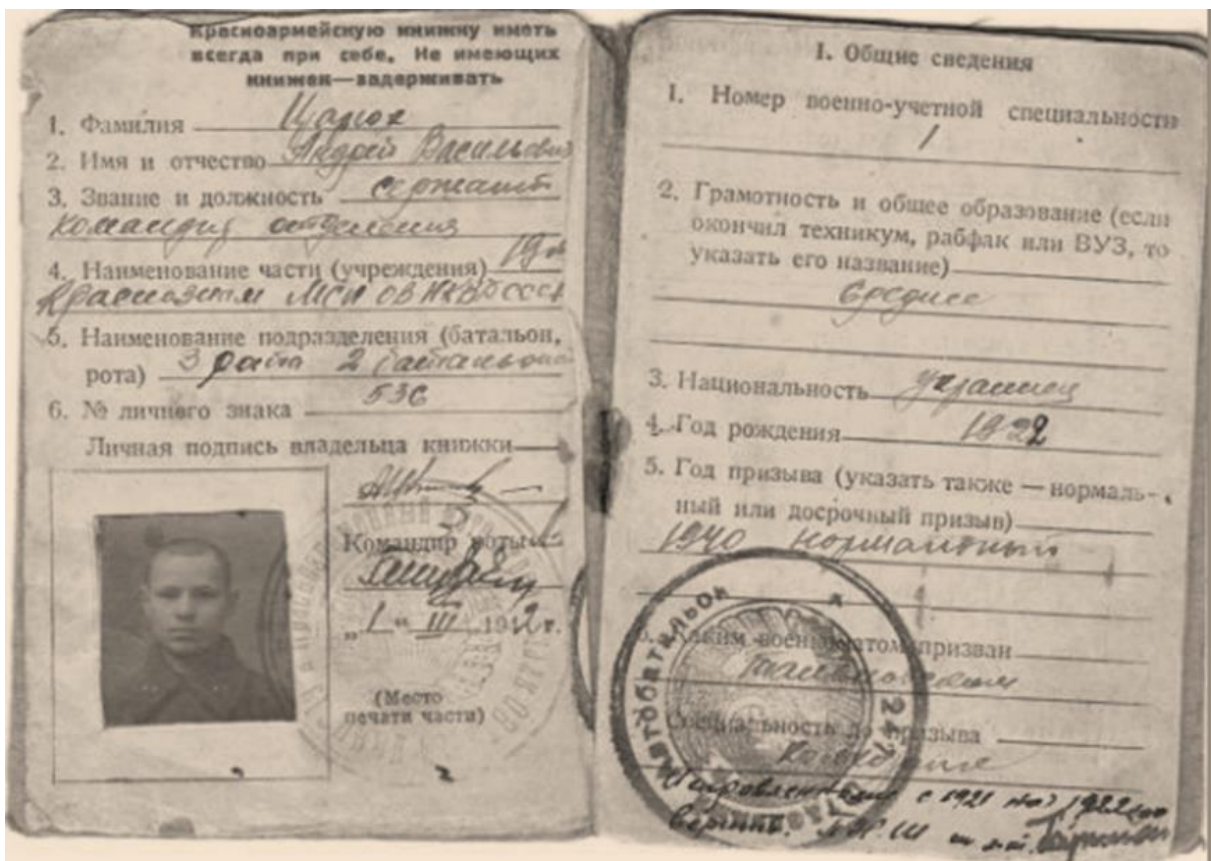 Красноармейскую книжку иметь
всегда при себе. Не имеющих
книжек—задерживать
1. Фамилия Царюк
2. Имя и отчество Андрей Васильевич
3. Звание и должность сержант
командир отделения
4. Наименование части (учреждения) 19
Краснознам МСП ОВ НКВД СССР
5. Наименование подразделения (батальон,
рота) 3 рота 2 батальона
6. № личного знака 536
Личная подпись владельца книжки
Командир роты
„1“ III 1942г.
(Место
печати части)
I. Общие сведения
1. Номер военно-учетной специальности
1
2. Грамотность и общее образование (если
окончил техникум, рабфак или ВУЗ, то
указать его название)
Среднее
3. Национальность украинец
4. Год рождения 1922
5. Год призыва (указать также — нормаль-
ный или досрочный призыв)
1940 нормальный
6. Каким военкоматом призван
Специальность до призыва
Автобатальон
с 1921 на 1922